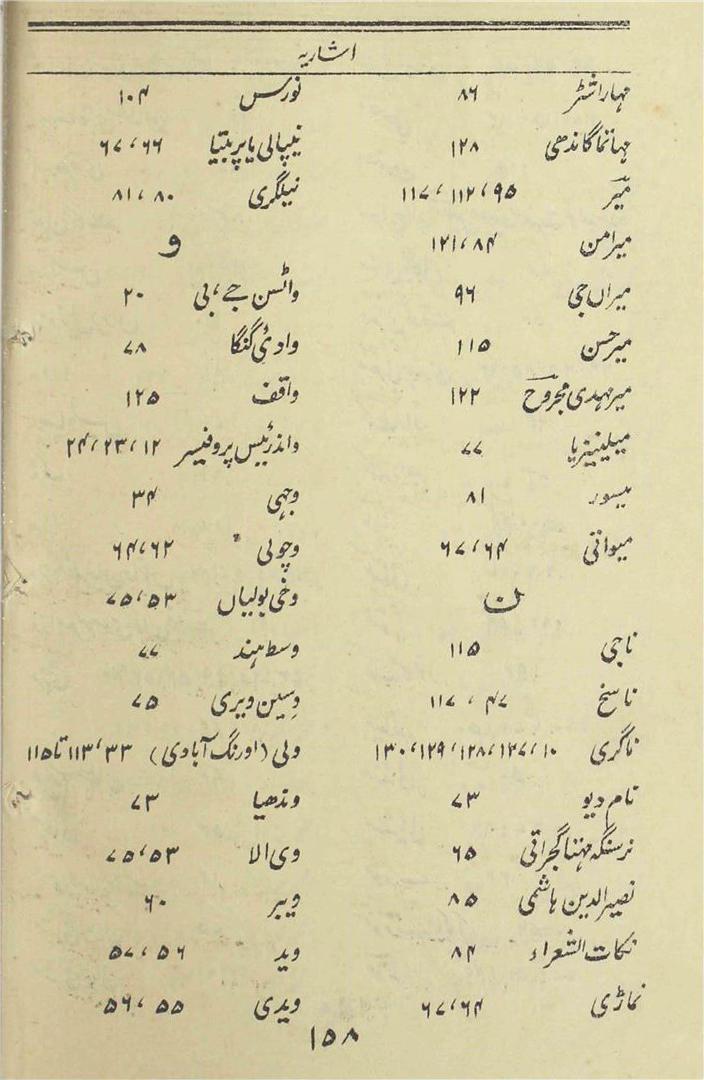 اشاریہ
مہاراشٹر ۸۶
مہاتما گاندھی ۱۲۸
میرؔ ۹۵، ۱۱۲، ۱۱۷
میر امن ۸۴، ۱۲۱
میراں جی ۹۶
میر حسن ۱۱۵
میر مہدی مجروحؔ ۱۲۲
میلینیزیا ۷۷
میسور ۸۱
میواتی ۶۴، ۶۷
ن
ناجی ۱۱۵
ناسخ ۴۷، ۱۱۷
ناگری ۱۰، ۱۲۷، ۱۲۸، ۱۲۹، ۱۳۰
نام دیو ۷۳
نرسنگہ مہنتا گجراتی ۶۵
نصیر الدین ہاشمی ۸۵
نکات الشعراء ۸۴
نماڑی ۶۴، ۶۷
نورس ۱۰۴
نیپالی یا پربتیا ۶۶، ۶۷
نیلگری ۸۰، ۸۱
و
واٹسن جے، بی ۲۰
وادئ گنگا ۷۸
واقف ۱۲۵
واندرئیس پروفیسر ۱۲، ۲۳، ۲۴
وجہی ۳۴
وچولی ۶۲، ۶۴
وخی بولیاں ۵۳، ۷۵
وسط ہند ۷۷
وسین ویری ۷۵
ولی (اورنگ آبادی) ۳۳، ۱۱۳ تا ۱۱۵
وندھیا ۷۳
وی الا ۵۳، ۷۵
ویبر ۶۰
وید ۵۶، ۵۷
ویدی ۵۵، ۵۶
۱۵۸